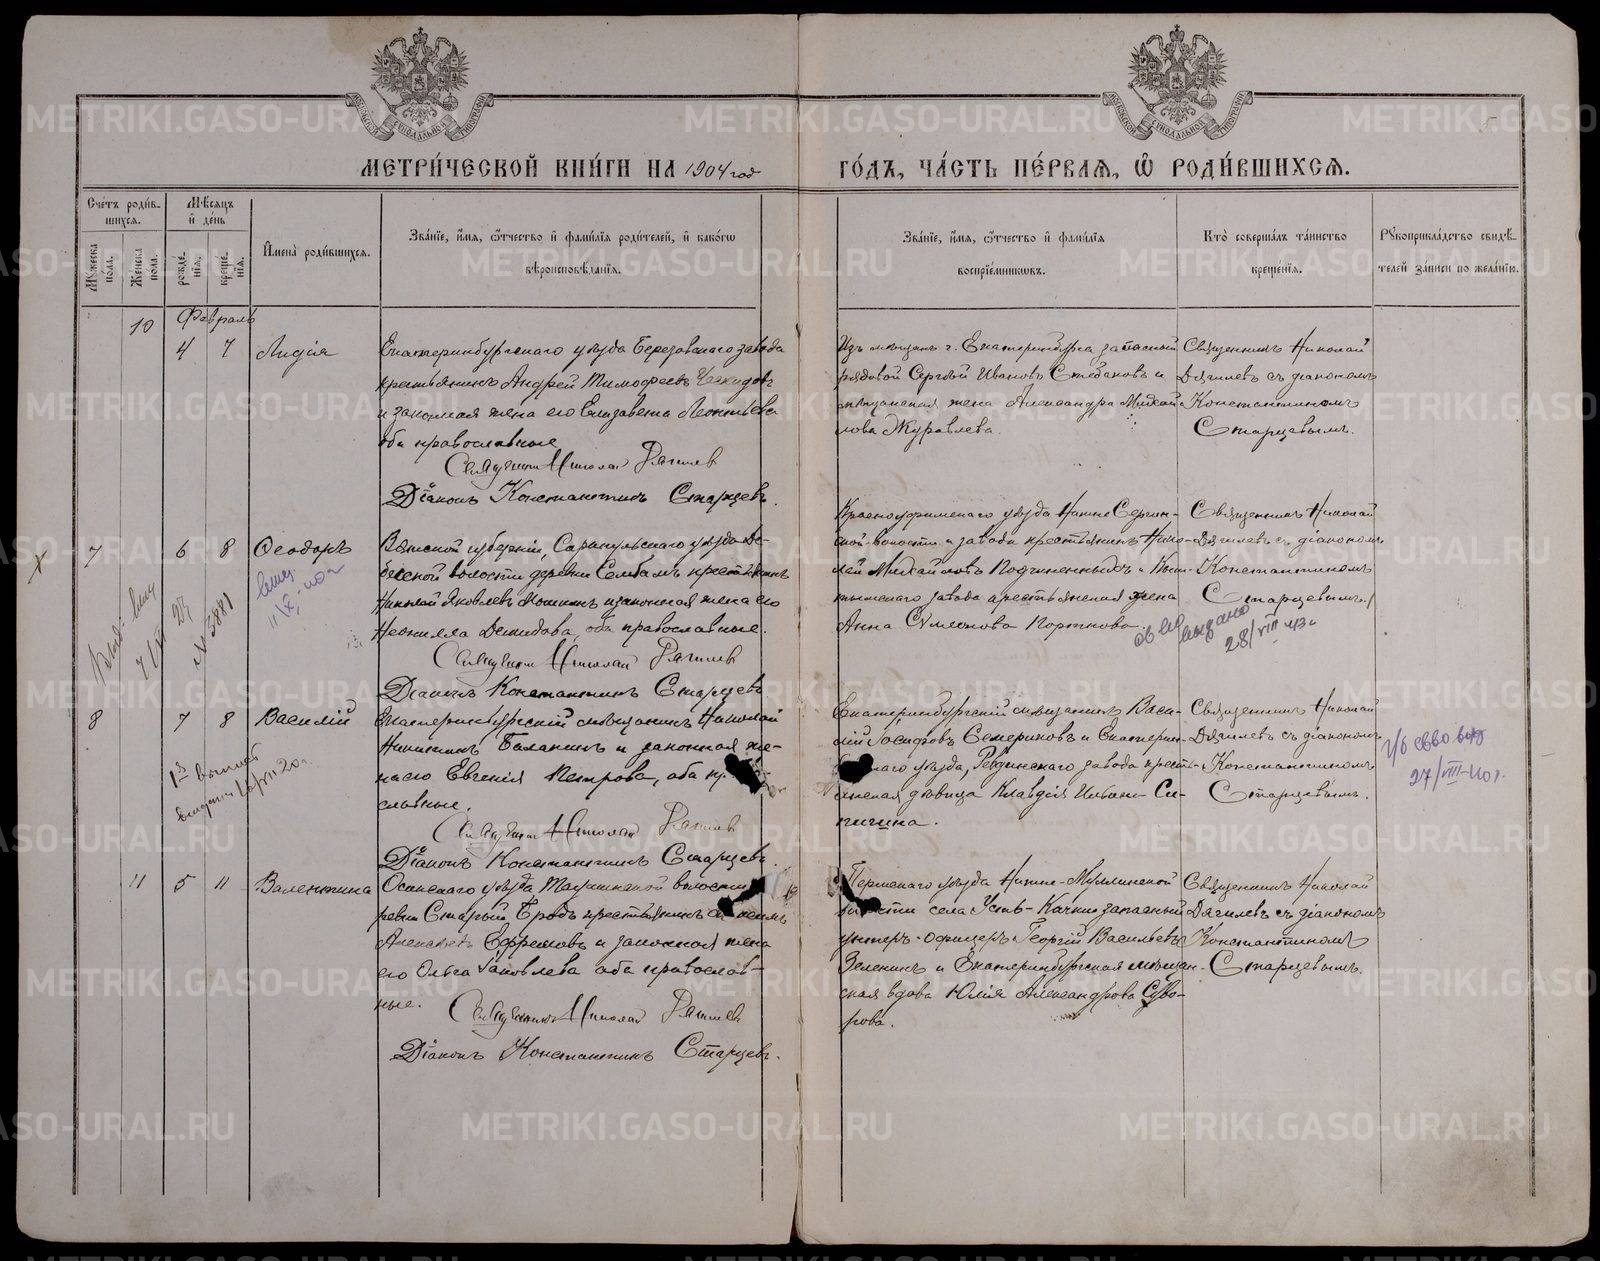 МОСКОВСКОЙ СѴНОДАЛЬНОЙ ТИПОГРАФІИ
МОСКОВСКОЙ СѴНОДАЛЬНОЙ ТИПОГРАФІИ
МЕТРИ́ЧЕСКОЙ КНИ́ГИ НА 1904 год
ГО́ДЪ, ЧА́СТЬ ПЕ́РВАЯ, Ѡ҆ РОДИ́ВШИХСЯ.
Сче́тъ роди́в-
шихся.
Мꙋ́жеска по́ла.
Же́нска по́ла.
Мѣ́сяцъ
и҆ де́нь
рожде́нїя.
креще́нїя.
И҆мена̀ роди́вшихся.
Зва́нїе, и҆́мя, ѻ҆́тчество и҆ фами́лїя роди́телей, и҆ како́гѡ
вѣроисповѣ́данїя.
Зва́нїе, и҆́мя, ѻ҆́тчество и҆ фами́лїя
воспрїе́мниковъ.
Кто̀ соверша́лъ та́инство
креще́нїя.
Рꙋкоприкла́дство свидѣ́-
телей за́писи по жела́нїю.
10
Февраль
4 7 Лидія
Екатеринбургскаго уѣзда Березовскаго завода
крестьянинъ Андрей Тимофеевъ Чекидовъ
и законная жена его Елизавета Леонтьева
оба православные
Священникъ Николай Дягилев
Діаконъ Константинъ Старцевъ.
Изъ мѣщанъ г. Екатеринбурга запасный
рядовой Сергѣй Ивановъ Стебаковъ и
мѣщанская жена Александра Михай-
лова Журавлева.
Священникъ Николай
Дягилевъ съ діакономъ
Константиномъ
Старцевымъ.
7 6 8 Ѳеодоръ
Вятской губерніи, Сарапульскаго уѣзда Де-
бесской волости деревни крестьянинъ
Николай Яковлевъ и законная жена его
Неонилла Демидова, оба православные.
Священникъ Николай Дягилев
Діаконъ Константинъ Старцевъ
Красноуфимскаго уѣзда Нижне Сергин-
ской волости и завода крестьянинъ Нико-
лай Михайловъ Подчиненныхъ и Кыш-
тымскаго завода крестьянская жена
Анна Сѵмеонова Портнова.
Священникъ Николай
Дягилевъ съ діакономъ
Константиномъ
Старцевымъ.
№ 3881
выдано
28/VIII 43 г
8 7 8 Василій
Екатеринбургскій мѣщанинъ Николай
Никитинъ Балакинъ и законная же-
на его Евгенія Петрова, оба пр
славные.
Священникъ Николай Дягилев
Діаконъ Константинъ Старцевъ.
Екатеринбургскій мѣщанинъ Васи-
лій Іосифовъ Семериковъ и Екатерин-
скаго уѣзда, Ревдинскаго завода кресть-
янская дѣвица Клавдія
Священникъ Николай
Дягилевъ съ діакономъ
Константиномъ
Старцевымъ.
27/VIII-40 г.
11 5 11 Валентина
Осинскаго уѣзда волости
ревни Старый Бродъ крестьянинъ
Алексѣевъ Ефремовъ и законная жена
его Ольга Яковлева оба православ-
ные.
Священникъ Николай Дягилев
Діаконъ Константинъ Старцевъ.
Пермскаго уѣзда Нижне-Муллинской
волости села Усть-Качки запасный
унтеръ-офицеръ Георгій Васильевъ
Зеленинъ и Екатеринбургская мѣщан-
ская вдова Юлія Александрова Суво-
рова.
Священникъ Николай
Дягилевъ съ діакономъ
Константиномъ
Старцевымъ.
METRIKI.GASO-URAL.RU